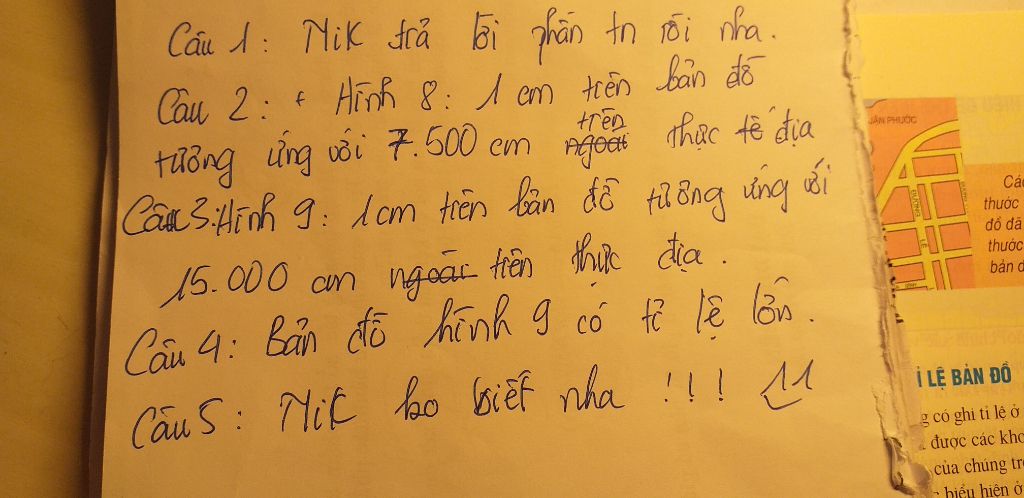 Câu 1: Mik trả lời phần tn rồi nha.
Câu 2: + Hình 8: 1 cm trên bản đồ
tương ứng với 7.500 cm ngoài trên thực tế địa
Câu 3: Hình 9: 1cm trên bản đồ tương ứng với
15.000 cm ngoài trên thực địa.
Câu 4: Bản đồ hình 9 có tỉ lệ lớn.
Câu 5: Mik ko biết nha !!!
UÂN PHƯỚC
ĐƯỜNG
LÊ
Các
thước
đồ đã
thước
bản đ
Ỉ LỆ BẢN ĐỒ
g có ghi tỉ lệ ở
được các kho
của chúng tr
biểu hiện ở